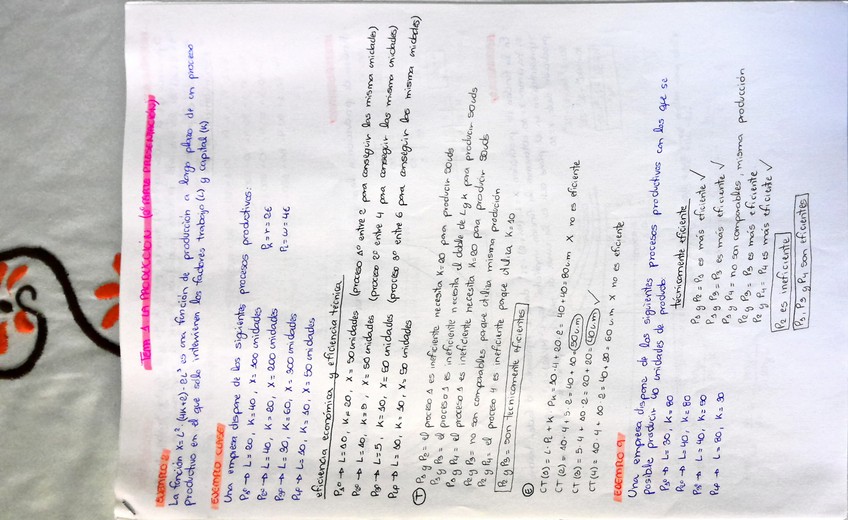 TEMA 1 LA PRODUCCIÓN
EJEMPLO 2:
La función X = L², (4K+2) - 2L³ es una función de producción a largo plazo de un proceso
productivo en el que solo intervienen los factores trabajo (L) y capital (K)
EJEMPLO CLASE
Una empresa dispone de los siguientes procesos productivos:
P1º → L = 20, K = 40, X = 100 unidades
P2º → L = 40, K = 20, X = 200 unidades
P3º → L = 30, K = 60, X = 300 unidades
P4º → L = 10, K = 10, X = 50 unidades
Pk = r = 2€
PL = w = 4€
eficiencia económica y eficiencia técnica
P1º → L = 10, K = 20, X = 50 unidades (proceso 1º entre 2 para conseguir las misma unidades)
P2º → L = 10, K = 5, X = 50 unidades (proceso 2º entre 4 para conseguir las misma unidades)
P3º → L = 5, K = 10, X = 50 unidades (proceso 3º entre 6 para conseguir las misma unidades)
P4º → L = 10, K = 10, X = 50 unidades
T P1 y P2 = el proceso 1 es ineficiente necesita K=20 para producir 50uds
P1 y P3 = el proceso 1 es ineficiente necesita el doble de L y K para producir 50uds
P1 y P4 = el proceso 1 es ineficiente necesita K=20 para producir 50uds
P2 y P3 = no son comparables porque utiliza misma producción
P2 y P4 = el proceso 4 es ineficiente porque utiliza K=10
P2 y P3 = son tecnicamente eficientes
E CT(1) = L·PL + K·PK = 10·4 + 20·2 = 40+40 = 80 um X no es eficiente
CT(2) = 10·4 + 5·2 = 40+10 = 50um
CT(3) = 5·4 + 10·2 = 20+20 = 40um ✓
CT(4) = 10·4 + 10·2 = 40+20 = 60 um X no es eficiente
EJEMPLO 9
Una empresa dispone de los siguientes procesos productivos con los que se
posible producir 40 unidades de producto:
P1º → L = 30, K = 80
P2º → L = 40, K = 80
P3º → L = 40, K = 70
P4º → L = 80, K = 30
técnicamente eficiente
P1 y P2 = P1 es más eficiente ✓
P1 y P3 = P1 es más eficiente ✓
P1 y P4 = no son comparables, misma producción
P2 y P3 = P3 es más eficiente
P2 y P4 = P4 es más eficiente ✓
P2 es ineficiente
P1, P3 y P4 son eficientes